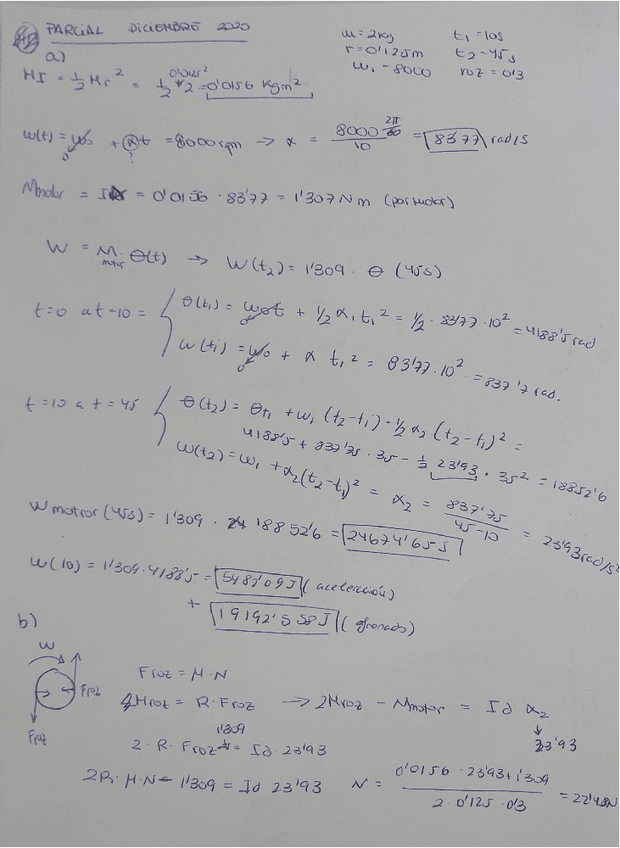 PARCIAL DICIEMBRE 2020
m = 2kg t₁ = 10s
r = 0'125m t₂ = 45s
w₁ - 8000 roz = 0'3
a)
MI = ½ Mr² = ½ 2 0'0125² = 0'0156 Kgm²
w(t) = w₀ + α t = 8000rpm → α = 8000 2π/60 / 10 = 83'77 rad/s
0 ?
Mmotor = Iα = 0'0156 · 83'77 = 1'307Nm (par motor)
W = Mmotor · θ(t) → W(t₂) = 1'309 · θ (45s)
t=0 a t=10 = { θ(t₁) = w₀t + ½ α₁ t₁² = ½ · 83'77 · 10² = 4188'5 rad
0
w(t₁) = w₀ + α t₁² = 83'77 · 10² = 837'7 rad.
0
t=10 a t=45 { θ(t₂) = θt₁ + w₁ (t₂-t₁) - ½ α₂ (t₂-t₁)² =
4188'5 + 837'75 · 35 - ½ 23'93 · 35² = 18852'6
w(t₂) = w₁ + α₂(t₂-t₁)² = α₂ = 837'75 / 45-10 = 23'93rad/s²
W motror (45s) = 1'309 · 18852'6 = 24674'65J
w(10) = 1'309·4188'5 = 5482'09J (aceleracción)
+ 19192'558J (frenado)
b)
w
Froz
Froz
Froz = M·N
Mrot = R·Froz → 2Mroz - Mmotor = Id α₂
23'93
1'309
2·R·Froz = Id·23'93
2R·M·N - 1'309 = Id 23'93 N = 0'0156 · 23'93 + 1'309 / 2·0'125·0'3 = 22'43N